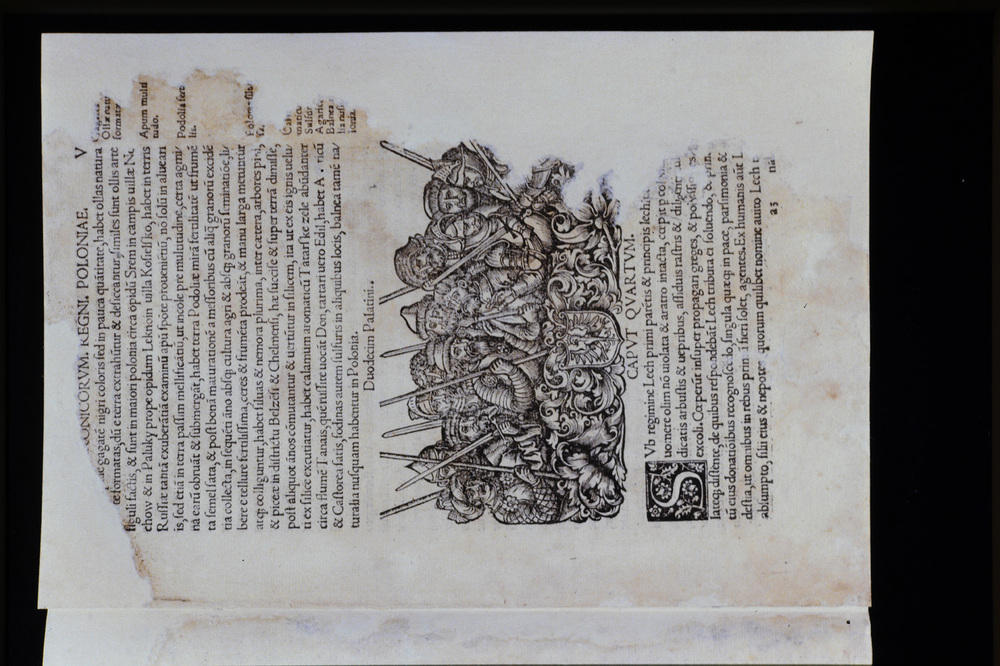 ONICORVM. REGNI. POLONIAE. V
gagaté nigri coloris sed in pauca quātitate, habet ollas natura
formatas, dū e terra extrahūtur & desiccantur similes sunt ollis arte
figuli factis, & sunt in maiori polonia circa opidū Srem in campis uillæ
chow & in Paluky prope opidum Leknoin uilla Kosselsko, habet in terris
Russiæ tantā exuberātiā examinū apū spōte proueniētiū, nō solū in aluear
is, sed etiā in terra passim mellificātiū, ut incole pre multitudine, certa agmi
na earū obruāt & submergāt, habet terra Podoliæ mirā fertilitatē ut frumē
ta semel sata, & post bonā maturationē a messoribus cū aliq granorū excidē
tia collecta, in sequēti āno absq; cultura agri & absq; granorū seminatiōe, li
bere e tellure fertilissima, ceres & frumēta prodeāt, & manu larga metuntur
atq; colliguntur, habet siluas & nemora plurima, inter cætera, arbores
& piceæ in districtu Belzēsi & Chelmensi, hæ succise & super terrā dimisse,
post aliquot ānos cōmutantur & uertūtur in silicem, ita ut ex eis ignis uelu
ti ex silice excutiatur, habet calamum aromaticū Tatarske zele abūdanter
circa flumē Tanais, quē russitæ uocāt Don, tartari uero Edil, habet
& Castorea satis, fodinas autem sulfuris in aliquibus locis, balnea tamē na
turalia nusquam habentur in Polonia.
Ollæ nru
formatæ
Apum multi
tudo.
Podoliæ fere
lis.
Sulfur
Agaric.
Balnea
Duodecim Palatini.
CAPVT QVARTVM.
SVb regimine Lech primi parētis & principis lechitarū
uomere olim nō uiolata & aratro intacta, cœpit
dicatis arbustis & uepribus, assiduis rastris & diligent
excoli. Cœperūt insuper propagari greges, &
latęq; distente, de quibus respōdebāt Lech tributa ei soluendo, &
tū eius donationibus recognoscēdo, singula quæq; in pace, parsimonia &
destia, ut omnibus in rebus fieri solet, agentes. Ex humanis aūt
absumpto, filii eius & nepote quorum quilibet nomine auito Lech
a5